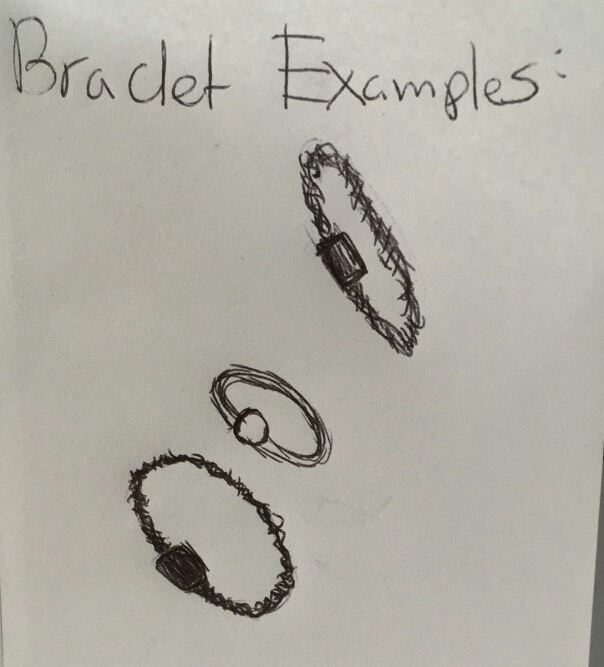 Braclet Examples: